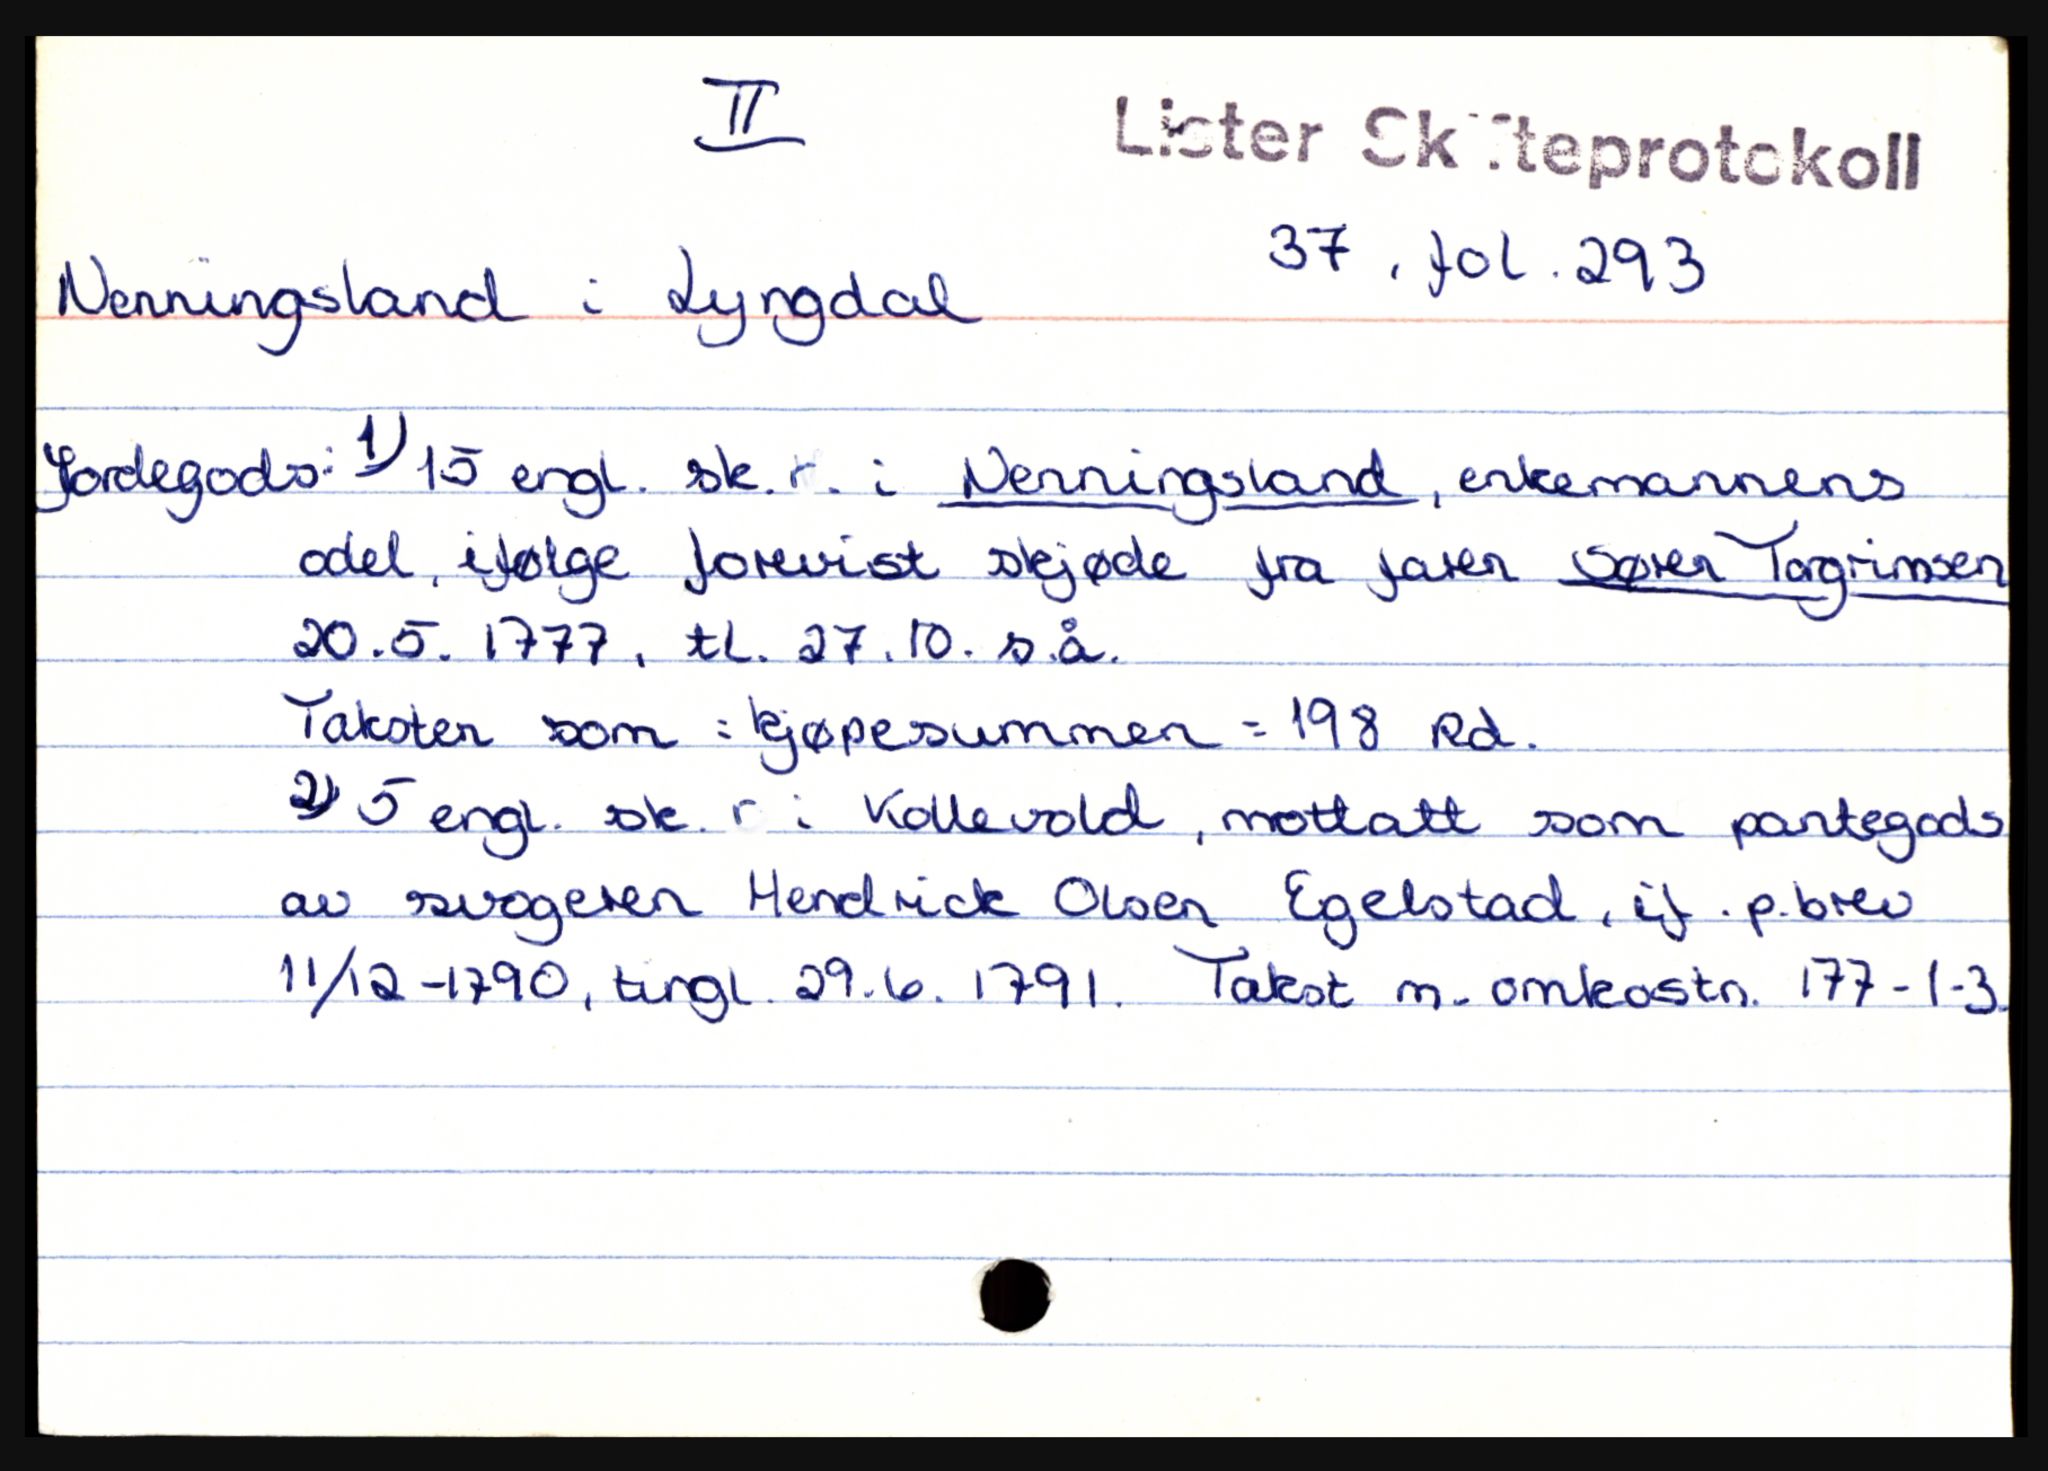 II
Lister Skifteprotokoll
37, fol. 293
Nenningsland i Lyngdal
Jordegods: 1) 15 engl. sk. r. i Nenningsland, enkemannens
odel, ifølge forevist skjøde fra faren Søren Torgrimsen
20.5. 1777, tl. 27.10. s.å.
Taksten som : kjøpesummen = 198 Rd.
2) 5 engl. sk. r i Kollevold, mottatt som pantegods
av svogeren Hendrick Olsen Egelstad, if. p.brev
11/12-1790, tingl. 29.6. 1791. Takst m. omkostn. 177-1-3.